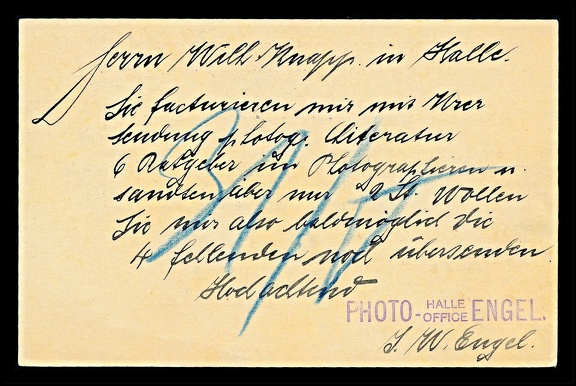 Herrn Wilh. Knapp. in Halle.
Sie facturieren mir mit Ihrer
Sendung photog. Literatur
6 Ratgeber im Photographieren u.
sandten aber nur 2 St. Wollen
Sie mir also baldmöglich die
4 fehlenden noch übersenden.
Hochachtend
PHOTO-HALLE OFFICE ENGEL.
J. W. Engel.